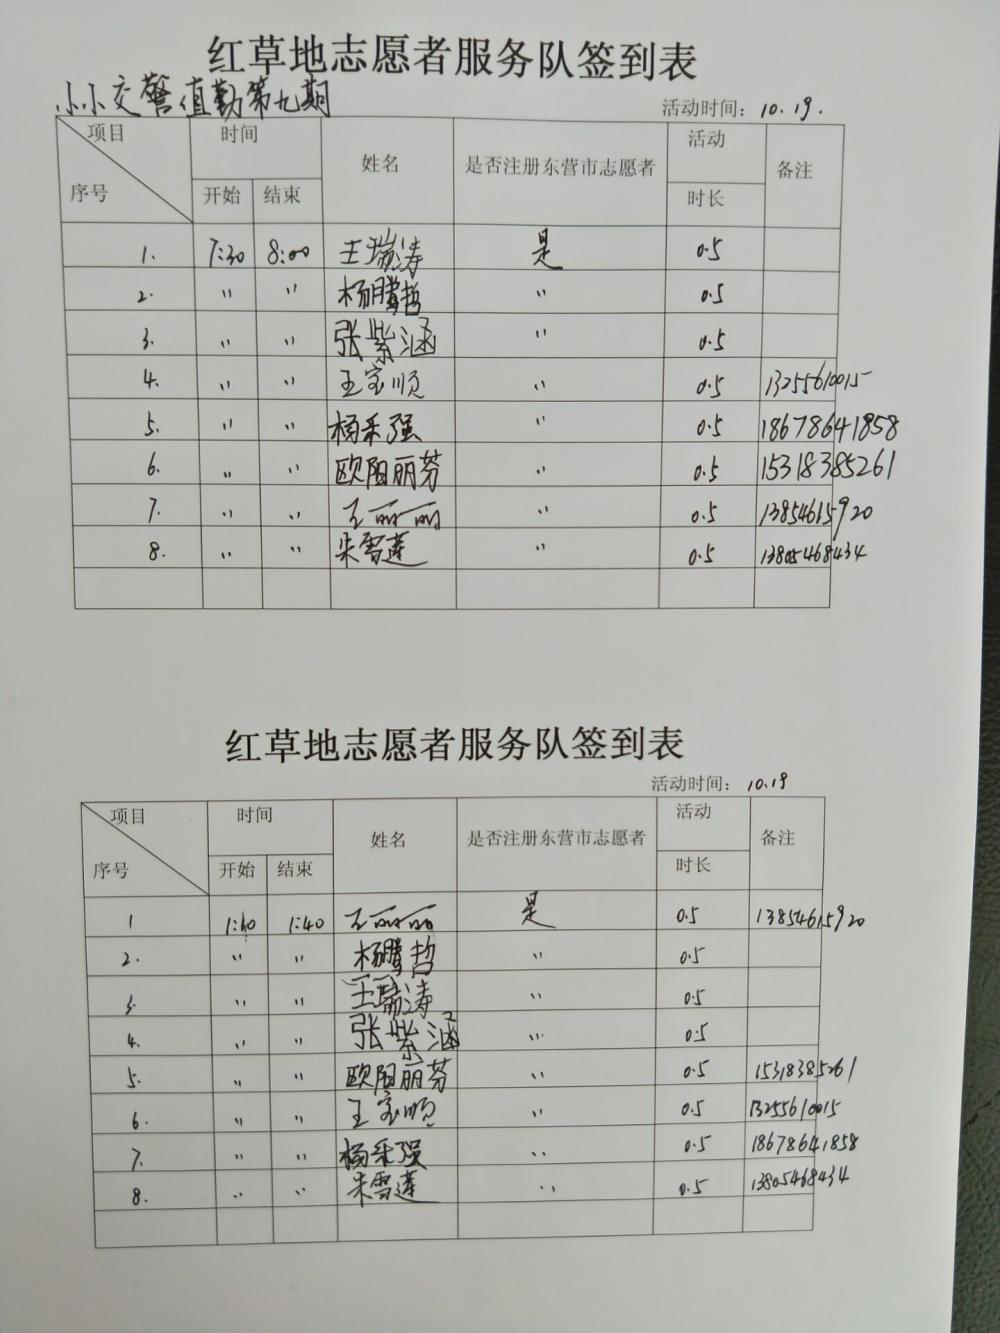 红草地志愿者服务队签到表
小小交警值勤第九期
活动时间：10.19.
项目 时间 姓名 是否注册东营市志愿者 活动 备注
序号 开始 结束 时长
1. 7:30 8:00 王瑞涛 是 0.5
2. 〃 〃 杨腾哲 〃 0.5
3. 〃 〃 张紫涵 〃 0.5
4. 〃 〃 王宝顺 〃 0.5 13255610015
5. 〃 〃 杨采强 〃 0.5 18678641858
6. 〃 〃 欧阳丽芬 〃 0.5 15318385261
7. 〃 〃 王丽丽 〃 0.5 13854615920
8. 〃 〃 朱雪莲 〃 0.5 13805468434
红草地志愿者服务队签到表
活动时间：10.19
项目 时间 姓名 是否注册东营市志愿者 活动 备注
序号 开始 结束 时长
1 1:10 1:40 王丽丽 是 0.5 13854615920
2. 〃 〃 杨腾哲 〃 0.5
3. 〃 〃 王瑞涛 〃 0.5
4. 〃 〃 张紫涵 〃 0.5
5. 〃 〃 欧阳丽芬 〃 0.5 15318385261
6. 〃 〃 王宝顺 〃 0.5 13255610015
7. 〃 〃 杨采强 〃 0.5 18678641858
8. 〃 〃 朱雪莲 〃 0.5 13805468434